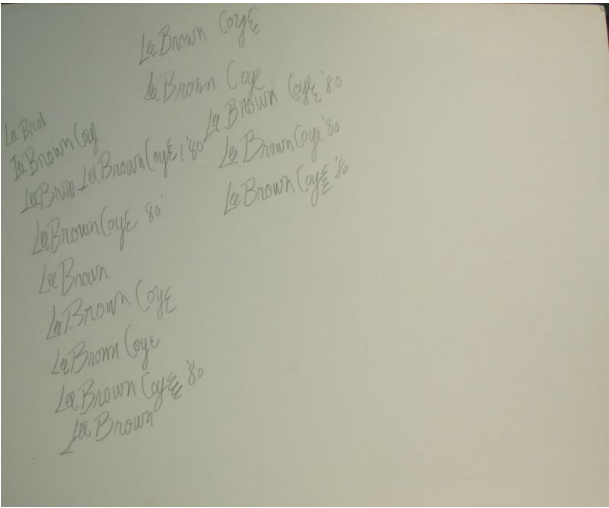 Lee Brown Coye
Lee Brown Coye
Lee Brown Coye '80
Lee Brown Coye '80
Lee Brown Coye '80
Lee Brow
Lee Brown Coye
Lee Brown Lee Brown Coye '80
Lee Brown Coye 80
Lee Brown
Lee Brown Coye
Lee Brown Coye
Lee Brown Coye '80
Lee Brown